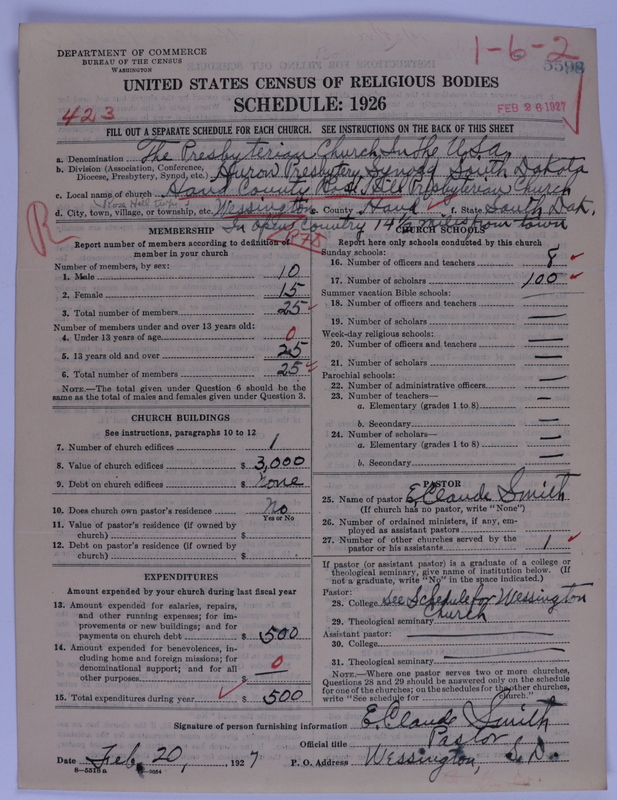 DEPARTMENT OF COMMERCE
BUREAU OF THE CENSUS
WASHINGTON
1-6-2
5598
UNITED STATES CENSUS OF RELIGIOUS BODIES
SCHEDULE: 1926
FEB 26 1927
423
FILL OUT A SEPARATE SCHEDULE FOR EACH CHURCH. SEE INSTRUCTIONS ON THE BACK OF THIS SHEET
a. Denomination The Presbyterian Church, In the U.S.A.
b. Division (Association, Conference, Diocese, Presbytery, Synod, etc.) Huron Presbytery Synod South Dakota
c. Local name of church Hand County Presbyterian Church
d. City, town, village, or township, etc. Wessington e. County Hand f. State South Dak.
In open country 14½ miles from town
R
MEMBERSHIP
Report number of members according to definition of member in your church
Number of members, by sex:
1. Male 10
2. Female 15
3. Total number of members 25
Number of members under and over 13 years old:
4. Under 13 years of age 0
5. 13 years old and over 25
6. Total number of members 25
NOTE.—The total given under Question 6 should be the same as the total of males and females given under Question 3.
CHURCH BUILDINGS
See instructions, paragraphs 10 to 12
7. Number of church edifices 1
8. Value of church edifices $ 3,000
9. Debt on church edifices $ None
10. Does church own pastor's residence No
Yes or No
11. Value of pastor's residence (if owned by church) $
12. Debt on pastor's residence (if owned by church) $
EXPENDITURES
Amount expended by your church during last fiscal year
13. Amount expended for salaries, repairs, and other running expenses; for improvements or new buildings; and for payments on church debt $ 500
14. Amount expended for benevolences, including home and foreign missions; for denominational support; and for all other purposes $ 0
15. Total expenditures during year $ 500
CHURCH SCHOOLS
Report here only schools conducted by this church
Sunday schools:
16. Number of officers and teachers 8
17. Number of scholars 100
Summer vacation Bible schools:
18. Number of officers and teachers
19. Number of scholars
Week-day religious schools:
20. Number of officers and teachers
21. Number of scholars
Parochial schools:
22. Number of administrative officers
23. Number of teachers—
a. Elementary (grades 1 to 8)
b. Secondary
24. Number of scholars—
a. Elementary (grades 1 to 8)
b. Secondary
PASTOR
25. Name of pastor E Claude Smith
(If church has no pastor, write "None")
26. Number of ordained ministers, if any, employed as assistant pastors
27. Number of other churches served by the pastor or his assistants 1
If pastor (or assistant pastor) is a graduate of a college or theological seminary, give name of institution below. (If not a graduate, write "No" in the space indicated.)
Pastor:
28. College see Schedule for Wessington Church
29. Theological seminary
Assistant pastor:
30. College
31. Theological seminary
NOTE.—Where one pastor serves two or more churches, Questions 28 and 29 should be answered only on the schedule for one of the churches; on the schedules for the other churches, write "See schedule for Church."
Signature of person furnishing information E Claude Smith
Official title Pastor
Date Feb. 20, 1927 P. O. Address Wessington, S.D.